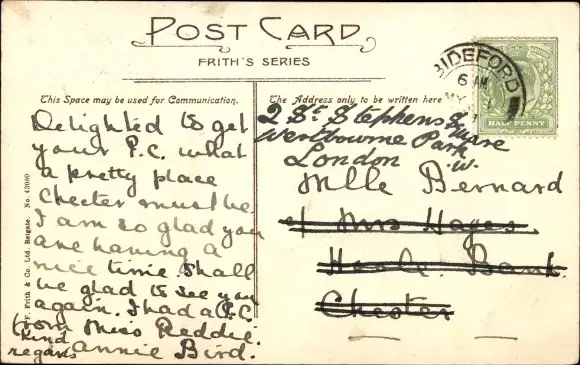 POST CARD
FRITH'S SERIES
This Space may be used for Communication.
The Address only to be written here
BIDEFORD
6 AM
MY
HALF PENNY
Delighted to get
your P.C. what
a pretty place
Chester must be.
I am so glad you
are having a
nice time shall
be glad to see you
again. I had a P.C.
from Miss Reddie.
kind
regards
Annie Bird.
2 St. Stephens Square
Westbourne Park
London W.
Mlle Bernard
c/o Mrs Hayes.
Bank.
Chester
F. Frith & Co. Ltd. Reigate. No. 43080